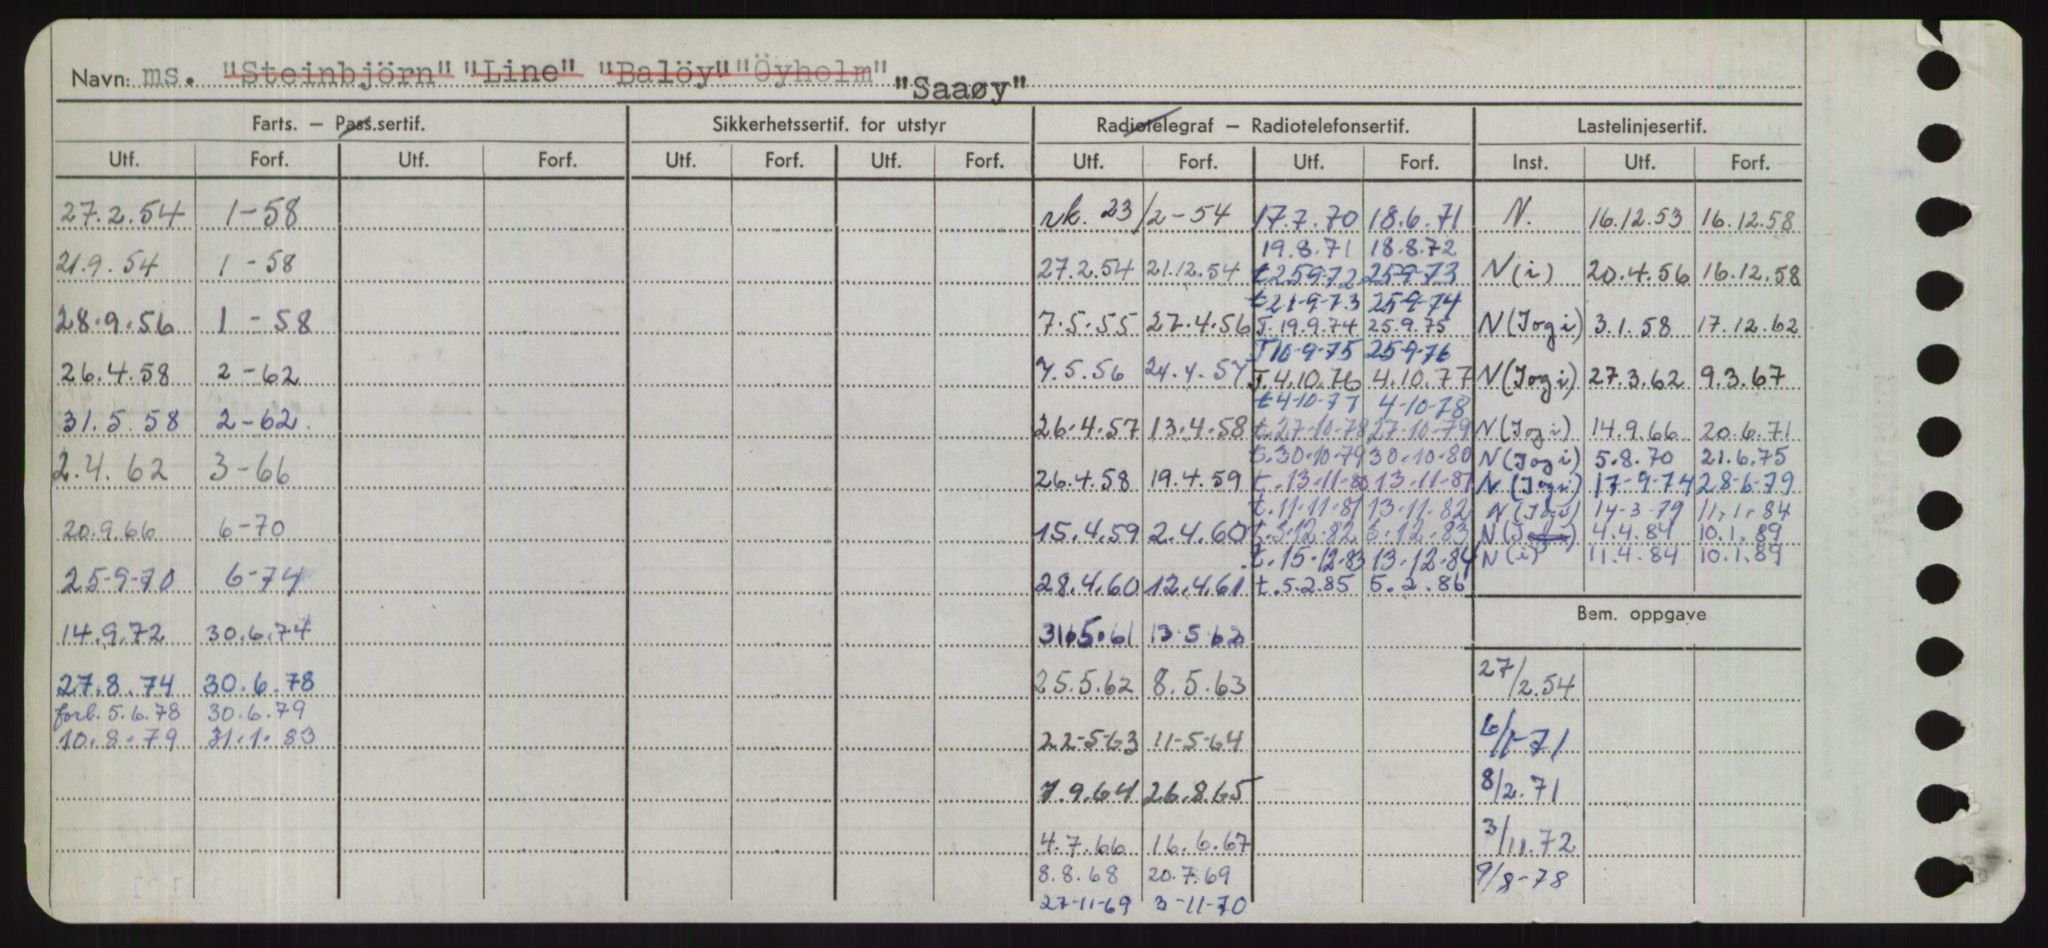 Navn: ms. "Steinbjörn" "Line" "Balöy" "Öyholm" "Saaøy"
Farts. — Pass.sertif. Sikkerhetssertif. for utstyr Radiotelegraf — Radiotelefonsertif. Lastelinjesertif.
Utf. Forf. Utf. Forf. Utf. Forf. Utf. Forf. Utf. Forf. Utf. Forf. Inst. Utf. Forf.
27.2.54 1-58 rk. 23/2-54 17.7.70 18.6.71 N. 16.12.53 16.12.58
19.8.71 18.8.72
21.9.54 1-58 27.2.54 21.12.54 t 25-9-72 25-9-73 N(i) 20.4.56 16.12.58
t 21-9-73 25-9-74
28.9.56 1-58 7.5.55 27.4.56 T. 19.9.74 25.9.75 N(Jog i) 3.1.58 17.12.62
T 10-9-75 25-9-76
26.4.58 2-62 7.5.56 24.4.57 T. 4.10.76 4.10.77 N(Jog i) 27.3.62 9.3.67
t 4-10-77 4-10-78
31.5.58 2-62. 26.4.57 13.4.58 t. 27-10-78 27-10-79 N(Jog i) 14.9.66 20.6.71
2.4.62 3-66 t. 30-10-79 30.10.80 N(Jog i) 5.8.70 21.6.75
26.4.58 19.4.59 t. 13-11-80 13-11-81 N(Jog i) 17-9-74 28-6-79
t. 11-11-81 13-11-82 N(Jog i) 14-3-79 11-1-84
20.9.66 6-70 15.4.59 2.4.60 t. 3.12.82 3.12.83 N(Jog i) 4.4.84 10.1.89
t. 15-12-83 13-12-84 N(i) 11.4.84 10.1.89
25-9-70 6-74 28.4.60 12.4.61 t. 5.2.85 5.2.86
Bem. oppgave
14.9.72 30.6.74 31.5.61 13.5.62
27.8.74 30.6.78 25.5.62 8.5.63 27/2.54
forl. 5.6.78 30.6.79
10.8.79 31.1.83 22-5-63 11-5-64 6/1-71
7.9.64 26.8.65 8/2.71
4.7.66 16.6.67 3/11.72
8.8.68 20.7.69 9/8-78
27-11-69 3-11-70